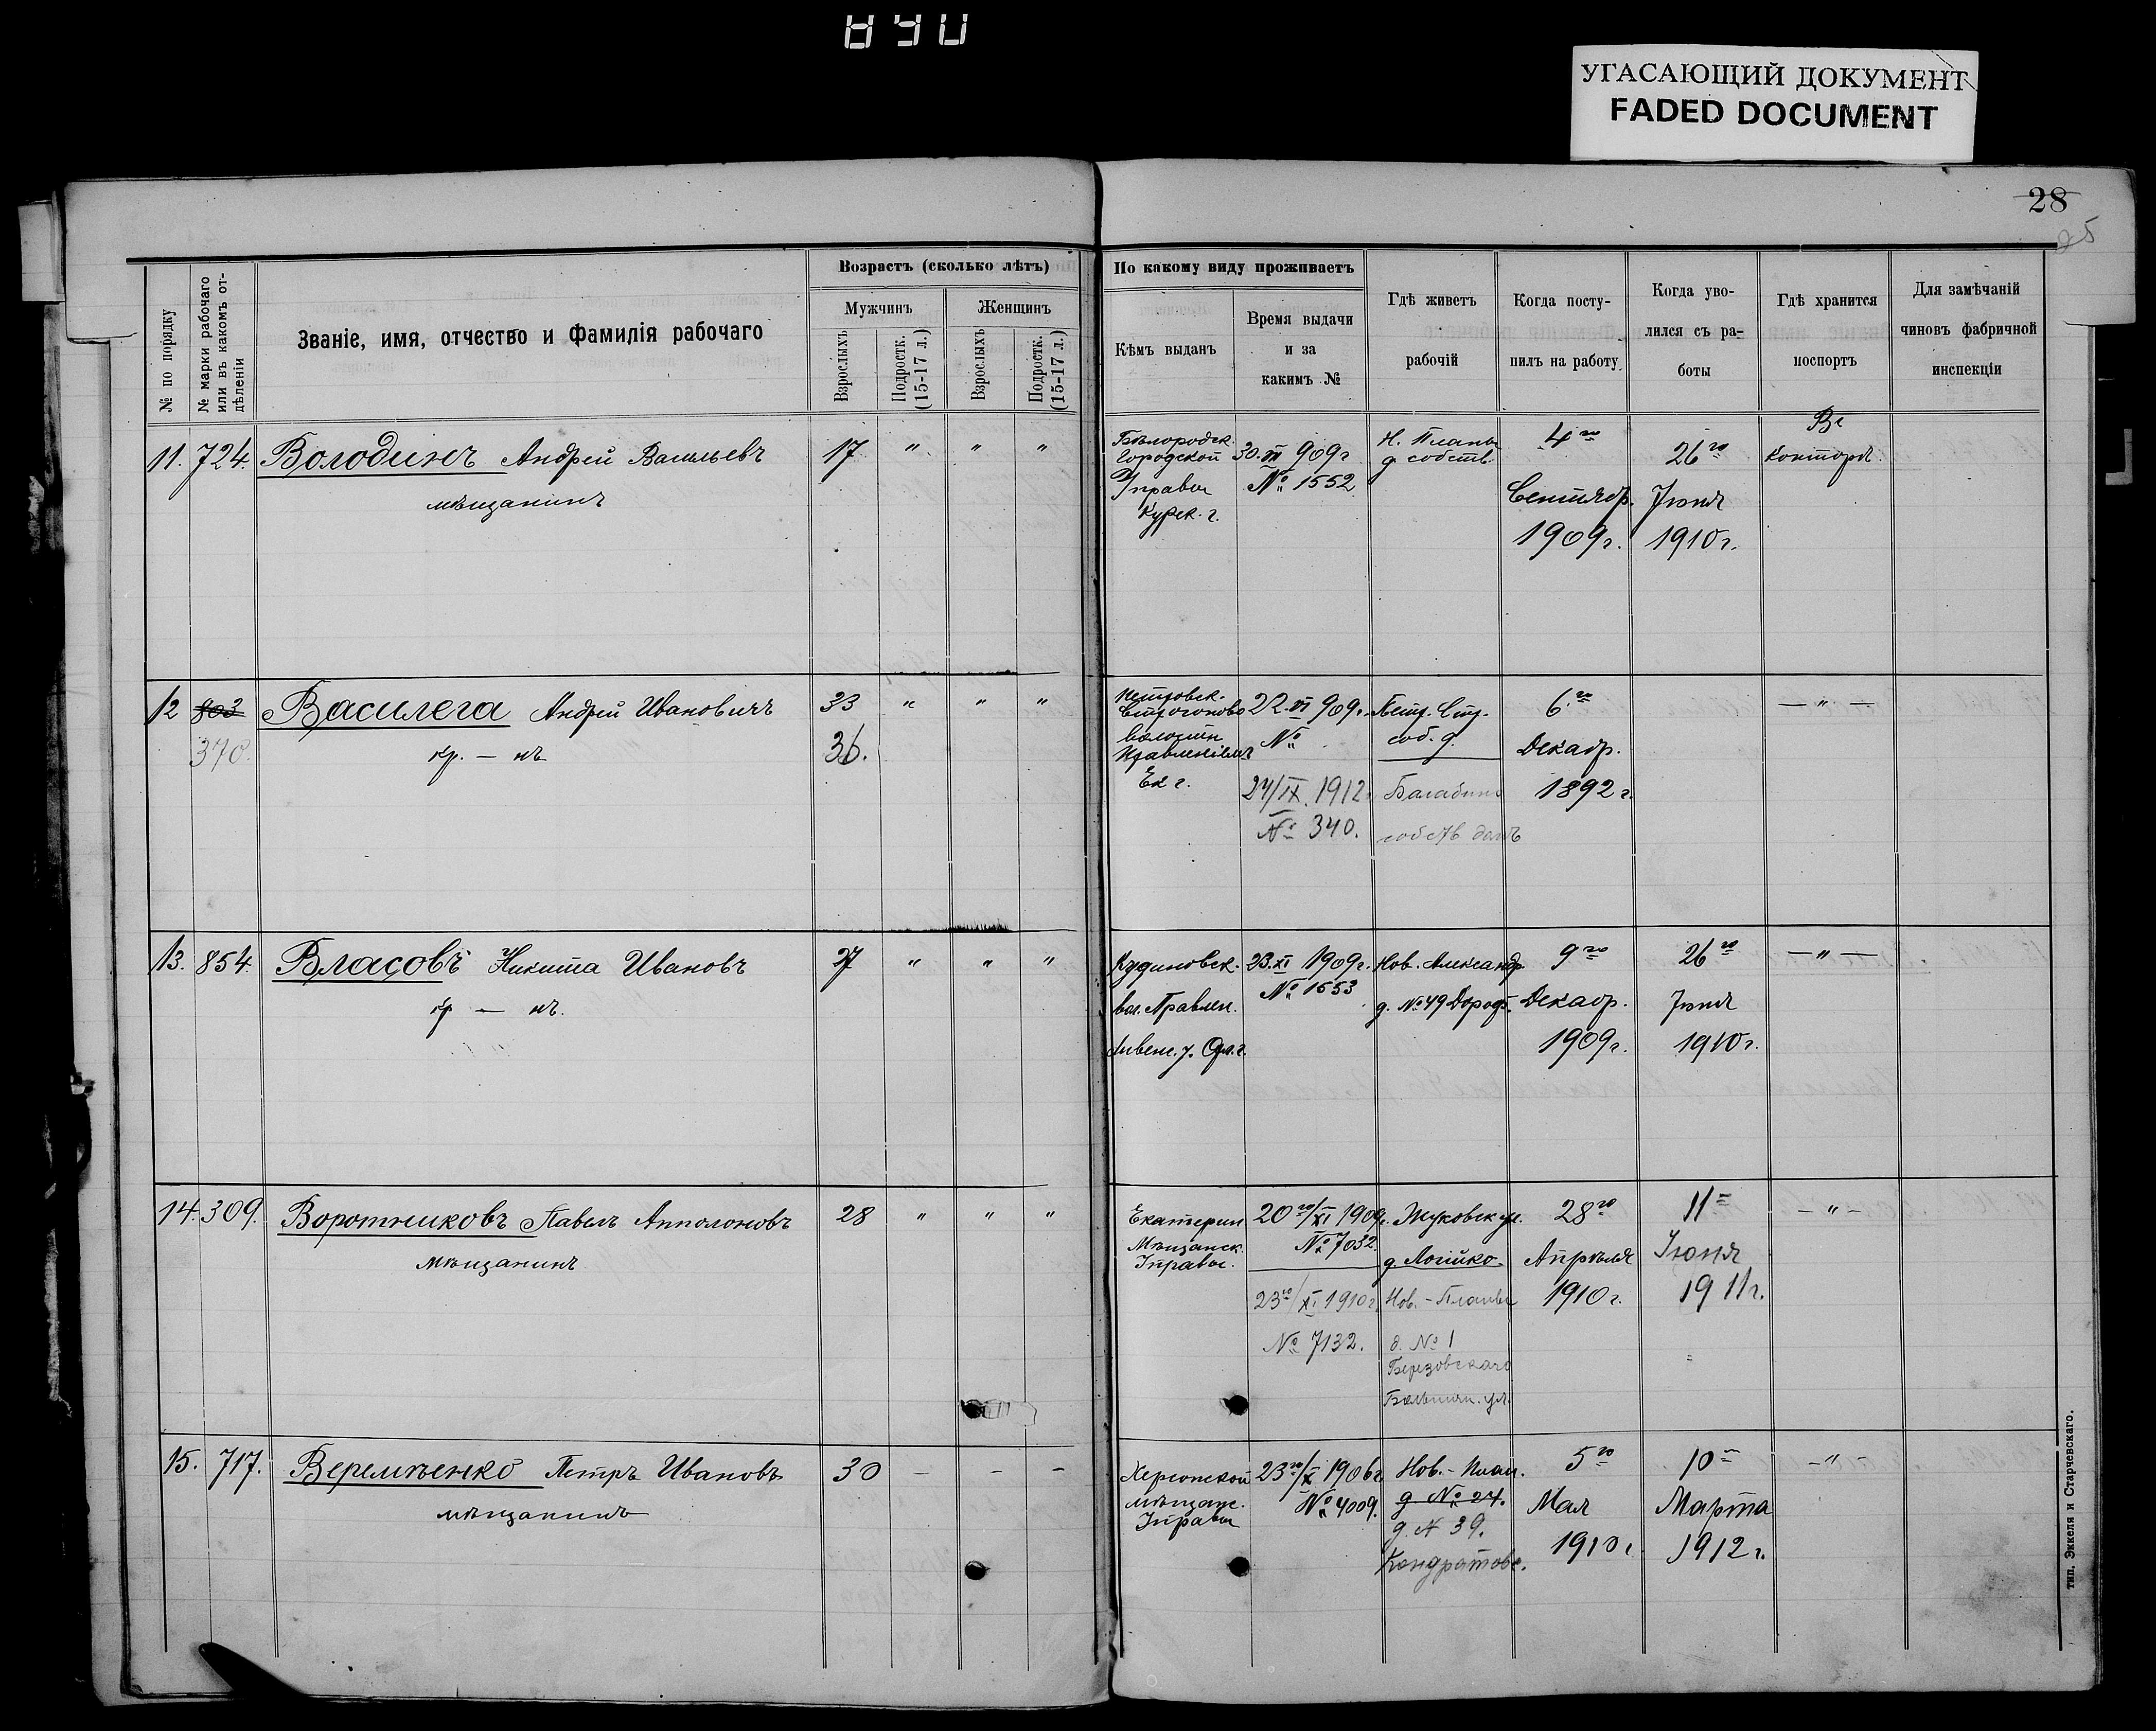 УГАСАЮЩИЙ ДОКУМЕНТ
FADED DOCUMENT
28
№ по порядку
№ марки рабочаго
или въ какомъ от-
дѣленіи
Званіе, имя, отчество и фамилія рабочаго
Возрастъ (сколько лѣтъ)
Мужчинъ
Женщинъ
Взрослыхъ
Подростк.
(15-17 л.)
Взрослыхъ
Подростк.
(15-17 л.)
По какому виду проживаетъ
Кѣмъ выданъ
Время выдачи
и за
какимъ №
Гдѣ живетъ
рабочій
Когда посту-
пилъ на работу
Когда уво-
лился съ ра-
боты
Гдѣ хранится
поспортъ
Для замѣчаній
чиновъ фабричной
инспекціи
11. 724. Володинъ Андрей Васильевъ 17 " " "
мѣщанинъ
Бѣлгородск.
Городской
Управы
Курск. г.
30. VII 909 г
№ 1552
Н. Планы
д. собств.
4го
Сентябр.
1909 г.
26го
Іюня
1910 г.
Въ
конторѣ.
12 803 Василега Андрей Ивановичъ 33 " " "
370. кр. — нъ 36.
Петровск.
Волостн
Правленіемъ
Ек г.
22. VI 909 г.
№
27/IX. 1912
№ 340.
Петр. Стр.
соб. д.
собств домъ
6го
Декабр.
1892 г.
— " —
13. 854. Власовъ Никита Ивановъ 27 " " "
кр — нъ.
Кудиновск.
вол. Правлен.
Ливенс. у. Орл. г.
23. XI 1909 г.
№ 1553
Нов. Александр.
д. № 49 Дороф.
9го
Декабр.
1909 г.
26го
Іюня
1910 г.
— " —
14. 309. Воротниковъ Павелъ Апполоновъ 28 " " "
мѣщанинъ
Екатерин
Мѣщанск.
Управы.
20го/XI 1909 г.
№ 7032.
23го/XI 1910 г.
№ 7132.
Жуковск ул.
д Логійко
Нов. - Планы
д. № 1
Березовскаго
28го
Апрѣля
1910 г.
11
Іюня
1911 г.
— " —
15. 717. Веремѣенко Петръ Ивановъ 30 — — —
мѣщанинъ
Херсонской
мѣщанс.
Управы
23го/X 1906 г
№ 4009.
Нов. - План.
д № 24.
д. № 39.
Кондратов.
5го
Мая
1910 г.
10
Марта
1912 г.
— " —
тип. Эккеля и Старчевскаго.